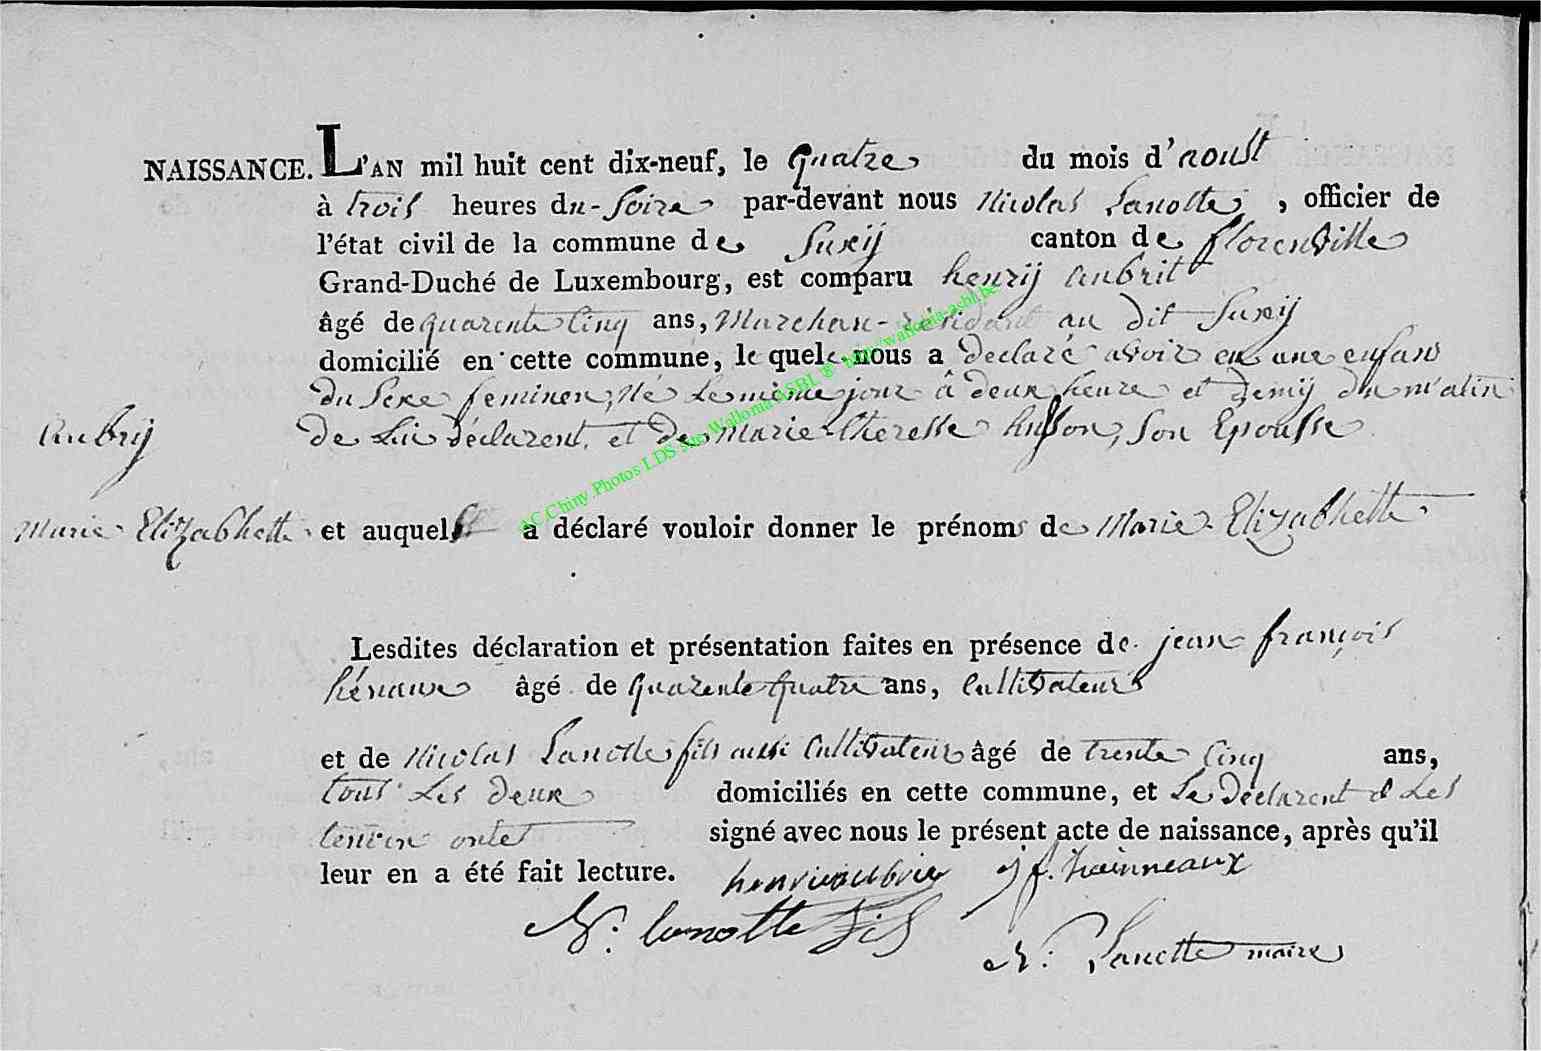 NAISSANCE. L'AN mil huit cent dix-neuf, le quatre du mois d'aoust
à trois heures du-soire par-devant nous Nicolas Lanotte, officier de
l'état civil de la commune de Suxÿ canton de florenville
Grand-Duché de Luxembourg, est comparu henrÿ aubrit
âgé de quarente Cinq ans, Marchan-résidant au dit Suxÿ
domicilié en cette commune, lequel nous a declaré avoir eu une enfans
du Sexe feminen, Né Le même jour â deux heure et demÿ du matin
Aubrÿ de Lui déclarent, et de marie Theresse husson, Son Epousse
Marie Elizabhette et auquel a déclaré vouloir donner le prénoms de Marie Elizabhette
Lesdites déclaration et présentation faites en présence de jean françois
hénaux âgé de quarente quatre ans, Cultivateurs
et de Nicolas Lanotte fils aussi Cultivateur âgé de trente Cinq ans,
tous Les deux domiciliés en cette commune, et Le déclarent et Les
temoin ontes signé avec nous le présent acte de naissance, après qu'il
leur en a été fait lecture. henri aubrie j f. hainneaux
N. lanotte fils
N. Lanotte maire
AC.Chiny Photos LDS sur Wallonia ASBL ® http://wallonia-asbl.be